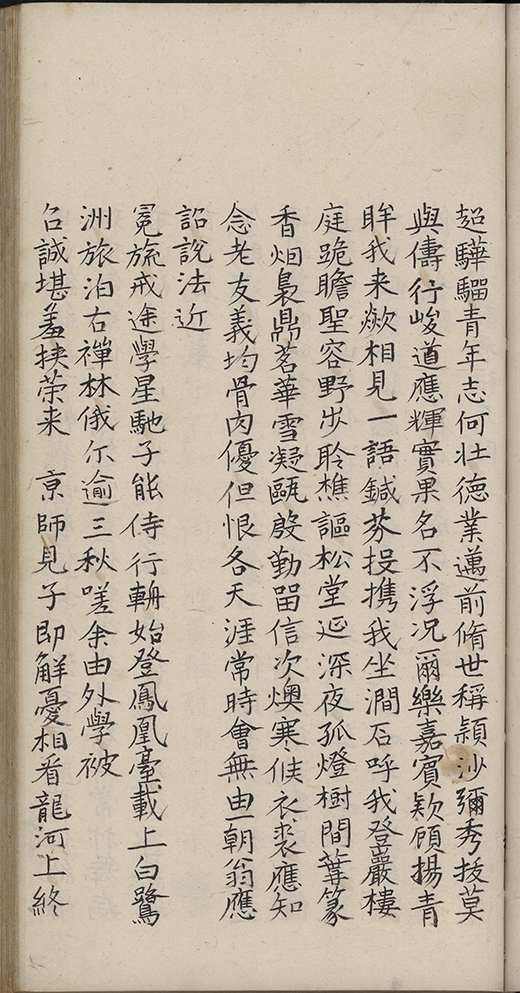 超驊騮青年志何壯德業邁前脩世稱穎沙彌秀拔莫
與儔行峻道應輝實果名不浮况爾樂嘉賓欵顧揚青
眸我来歘相見一語鍼芥投携我坐澗石呼我登巖樓
庭跪瞻聖容野步聆樵謳松堂延深夜孤燈樹間篝篆
香烟裊鼎茗華雪凝甌殷勤留信次燠寒候衣裘應知
念老友義均骨肉優但恨各天涯常時會無由一朝翁應
詔說法近
冕旒戒途學星馳子能侍行輈始登鳳凰臺載上白鷺
洲旅泊右禪林俄尔逾三秋嗟余由外學被
召誠堪羞挟荣来　京師見子即解憂相看龍河上終